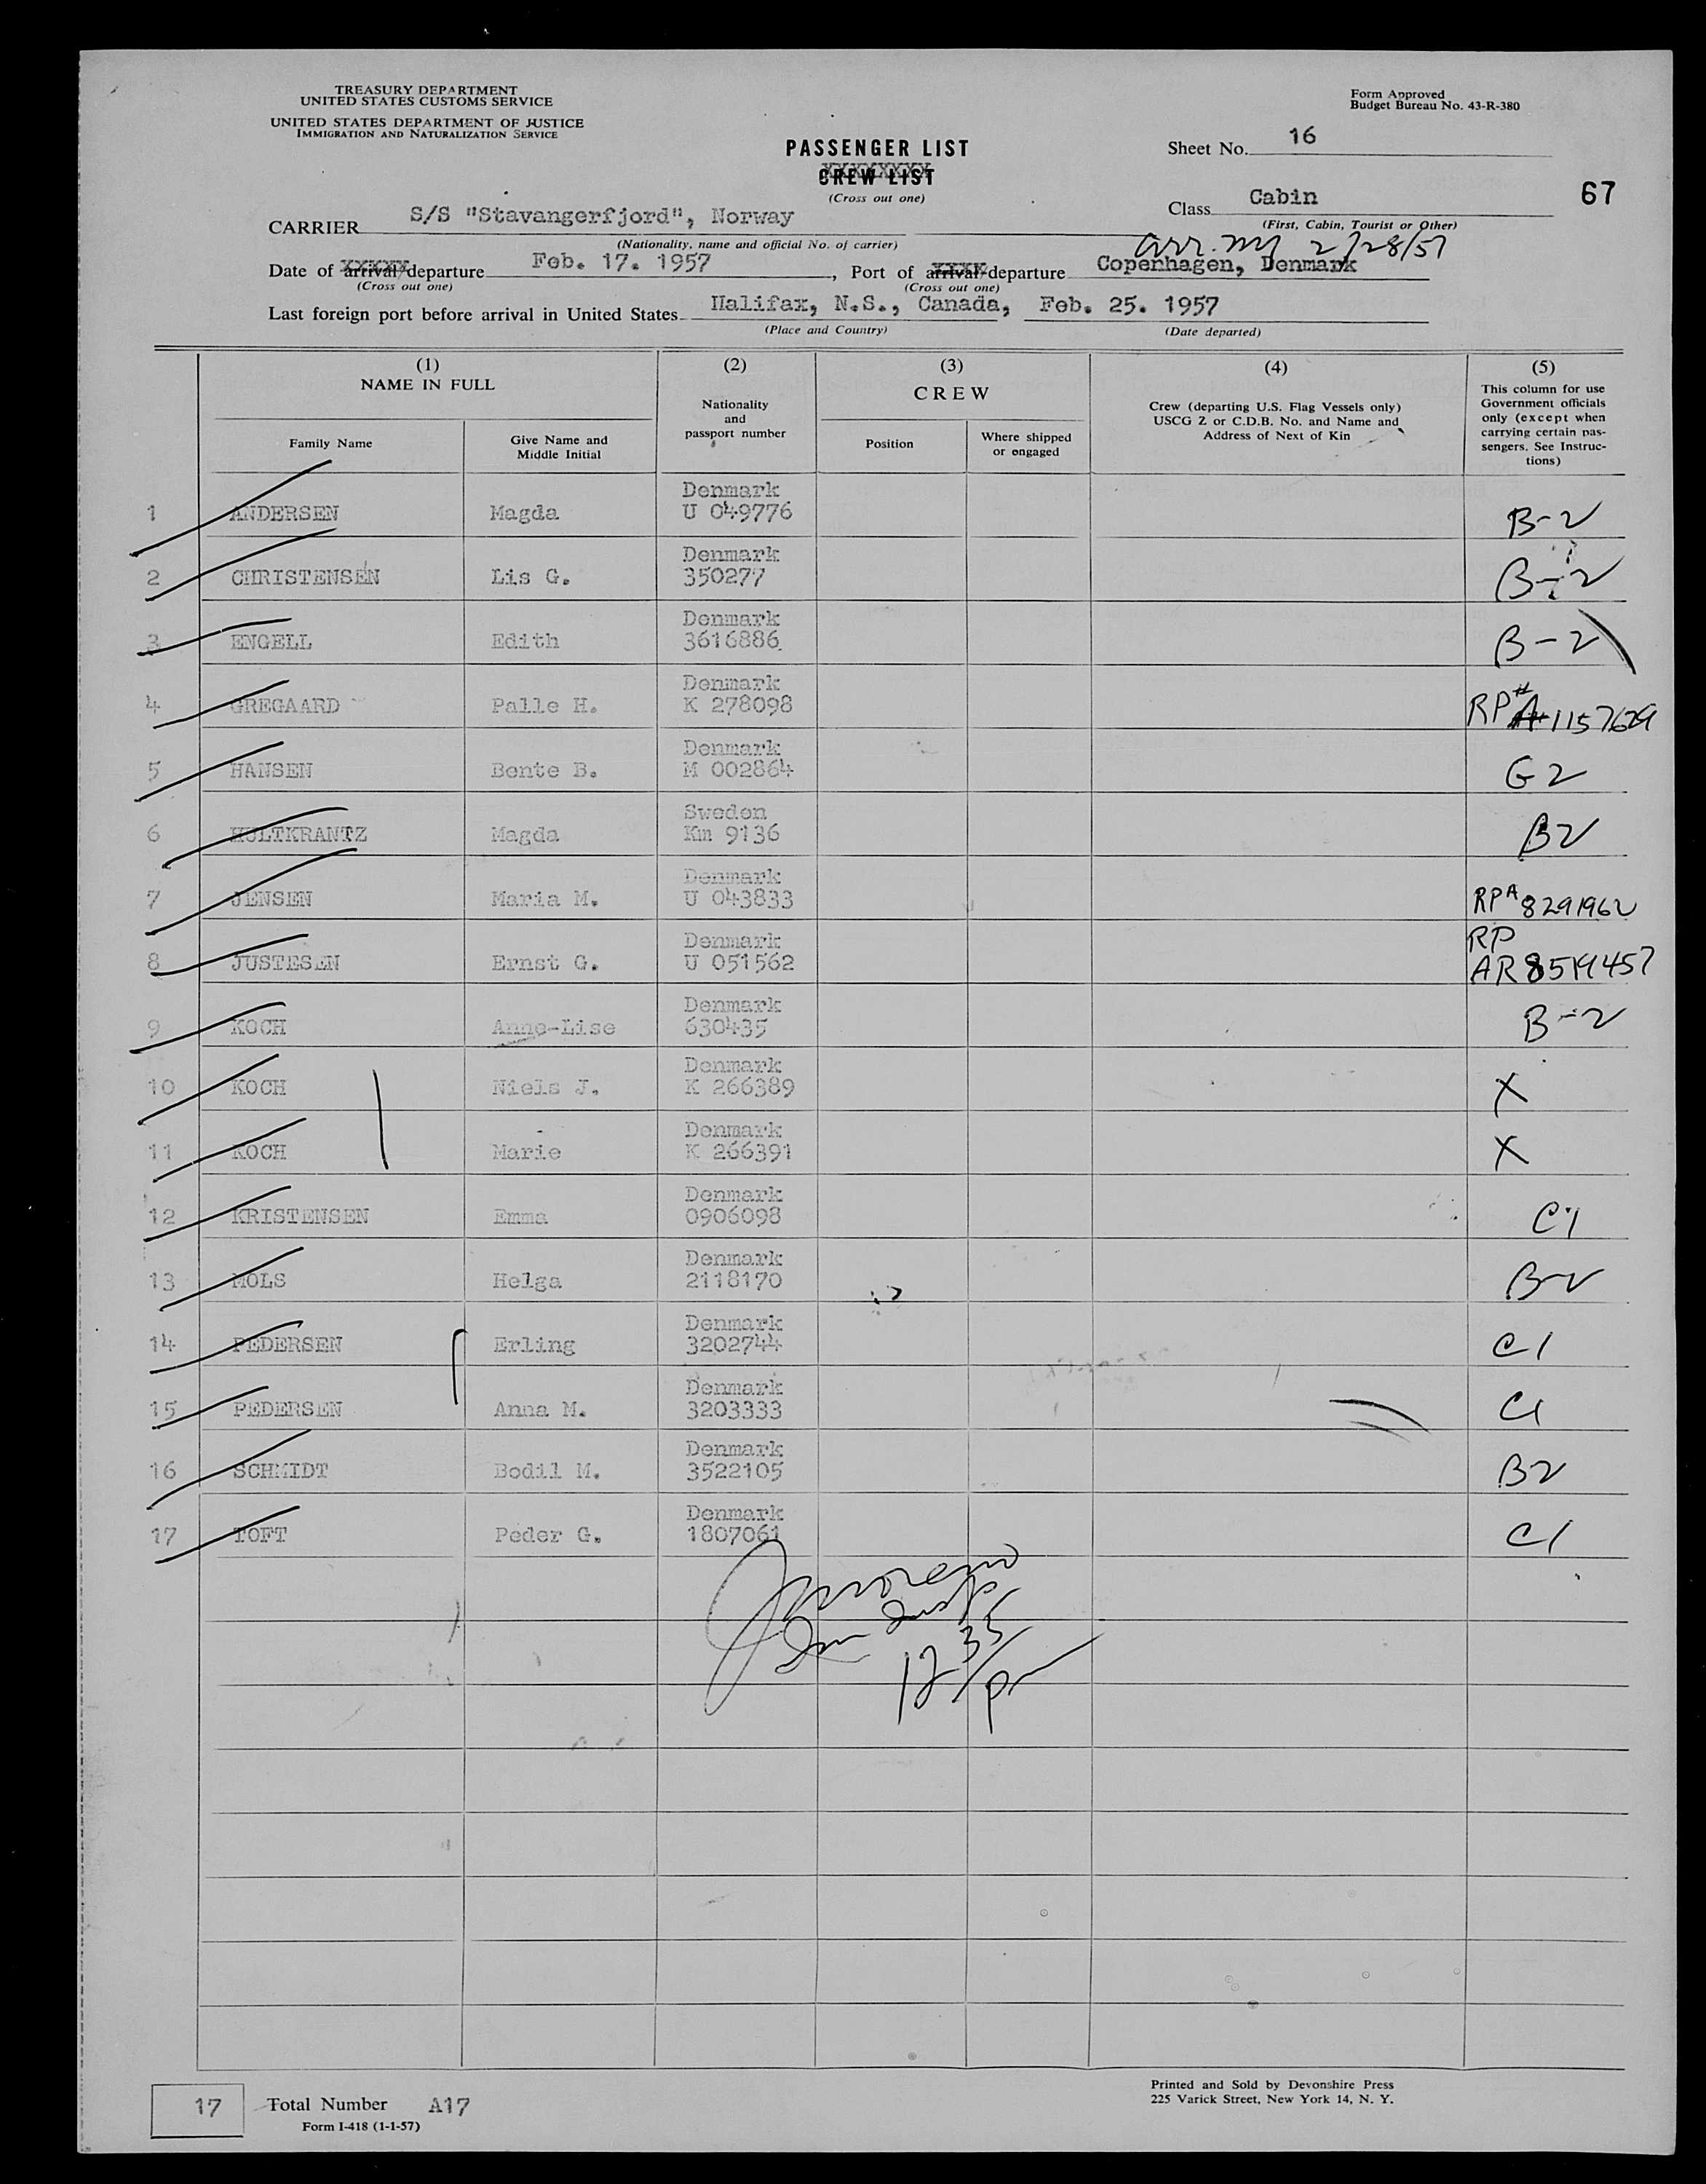 TREASURY DEPARTMENT
UNITED STATES CUSTOMS SERVICE
UNITED STATES DEPARTMENT OF JUSTICE
IMMIGRATION AND NATURALIZATION SERVICE
Form Approved
Budget Bureau No. 43-R-380
PASSENGER LIST
CREW LIST
(Cross out one)
Sheet No. 16
67
Class Cabin
(First, Cabin, Tourist or Other)
CARRIER S/S "Stavangerfjord", Norway
(Nationality, name and official No. of carrier)
arr. ny 2/28/57
Date of arrival/departure Feb. 17. 1957, Port of arrival/departure Copenhagen, Denmark
(Cross out one) (Cross out one)
Last foreign port before arrival in United States Halifax, N.S., Canada, Feb. 25. 1957
(Place and Country) (Date departed)
(1) (2) (3) (4) (5)
NAME IN FULL
Family Name
Give Name and
Middle Initial
Nationality
and
passport number
CREW
Position
Where shipped
or engaged
Crew (departing U.S. Flag Vessels only)
USCG Z or C.D.B. No. and Name and
Address of Next of Kin
This column for use
Government officials
only (except when
carrying certain pas-
sengers. See Instruc-
tions)
Denmark
1 ANDERSEN Magda U 049776 B-2
Denmark
2 CHRISTENSEN Lis G. 350277 B-2
Denmark
3 ENGELL Edith 3616886 B-2
Denmark
4 GREGAARD Palle H. K 278098 RP# A-1157629
Denmark
5 HANSEN Bente B. M 002864 G2
Sweden
6 HULTKRANTZ Magda Km 9136 B2
Denmark
7 JENSEN Maria M. U 043833 RPA 8291962
Denmark RP
8 JUSTESEN Ernst G. U 051562 AR
Denmark
9 KOCH Anne-Lise 630435 B-2
Denmark
10 KOCH Niels J. K 266389 X
Denmark
11 KOCH Marie K 266391 X
Denmark
12 KRISTENSEN Emma 0906098 C1
Denmark
13 MOLS Helga 2118170 B-2
Denmark
14 PEDERSEN Erling 3202744 C1
Denmark
15 PEDERSEN Anna M. 3203333 C1
Denmark
16 SCHMIDT Bodil M. 3522105 B2
Denmark
17 TOFT Peder G. 1807061 C1
12 35/pm
17 Total Number A17
Form I-418 (1-1-57)
Printed and Sold by Devonshire Press
225 Varick Street, New York 14, N. Y.